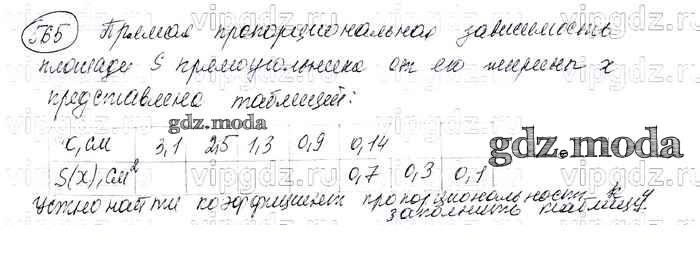 565 Прямая пропорциональная зависимость
площади S прямоугольника от его ширины x
представлена таблицей:
gdz.moda
x, см 3,1 2,5 1,3 0,9 0,14
gdz.moda
S(x), см² 0,7 0,3 0,1
Устно найти коэффициент пропорциональности k и
заполнить таблицу.